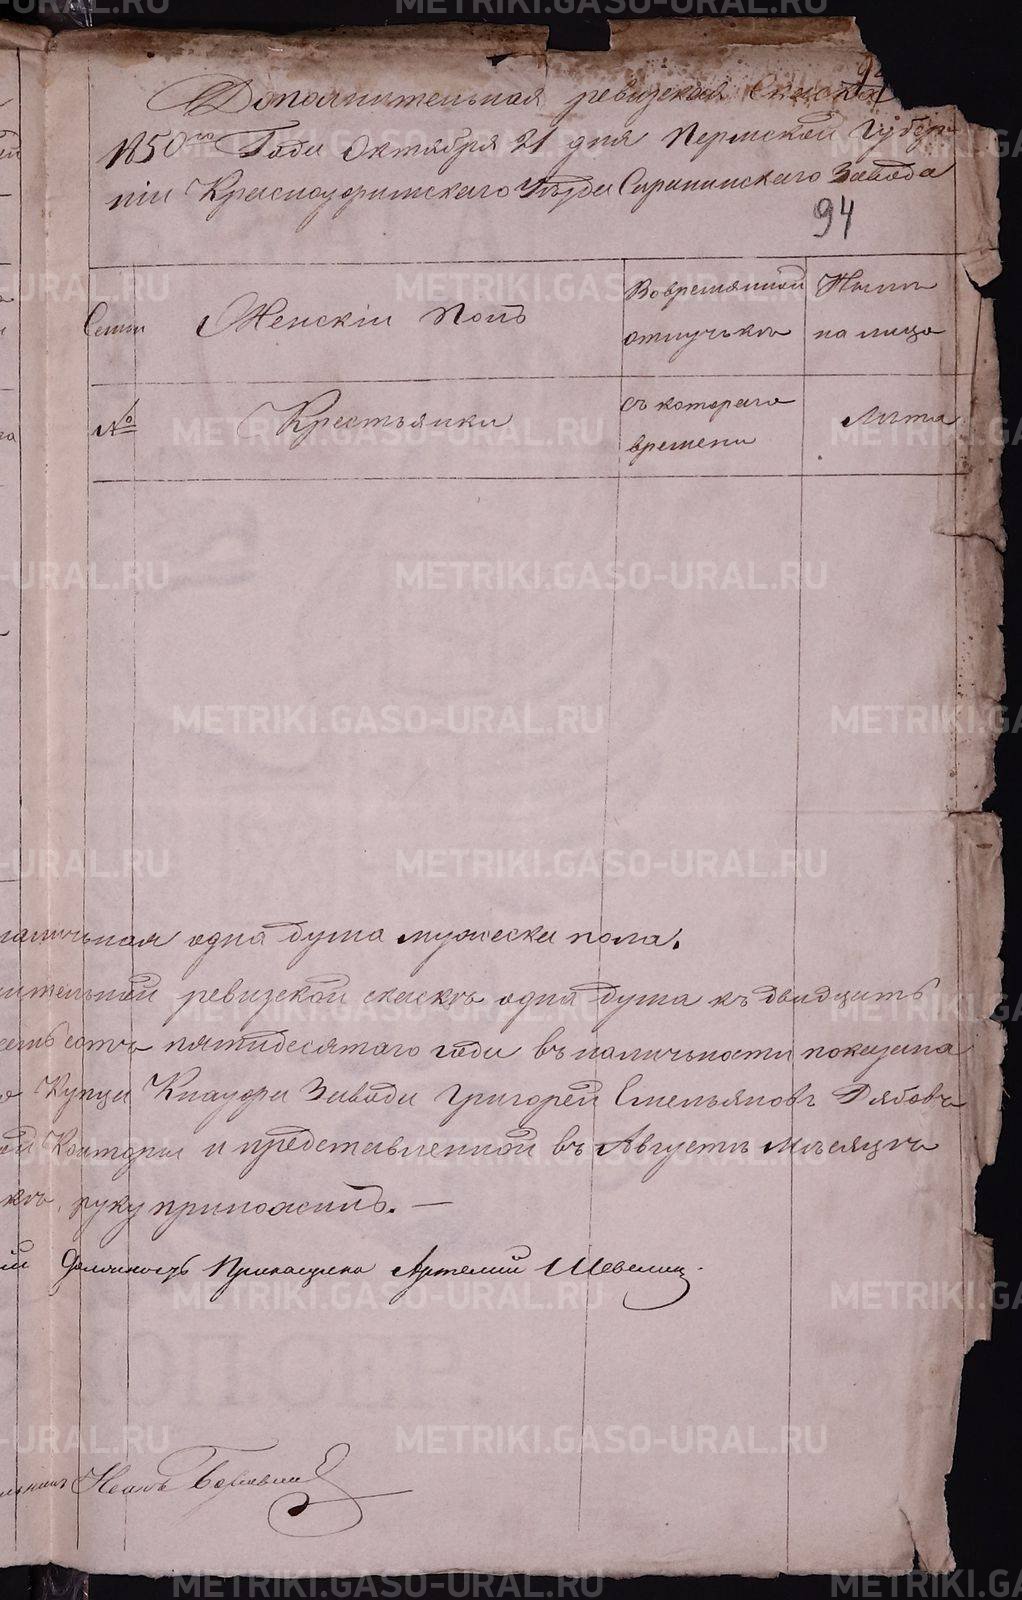 Дополнительная ревизская Сказка
1850го Года Октября 21 дня Пермской Губер-
ніи Красноуфимскаго Уѣзда Саранинскаго Завода
94
Семьи
Женскій Полъ
Во временной
отлучькѣ
Нынѣ
на лицо
№
Крестьянки
съ котораго
времени
Лѣта
наличьная одна душа мужеска пола.
нительной ревизской скаскѣ одна душа къ двадцать
семь сотъ пятидесятаго года въ наличьности показана
Купца Кнауфа Завода Григорей Емельяновъ Рябовъ
Конторы и представленной въ Августѣ мѣсяцѣ
кѣ, руку приложилъ. —
ій Должность Прикащика Артемій Шевелин
Иванъ
METRIKI.GASO-URAL.RU